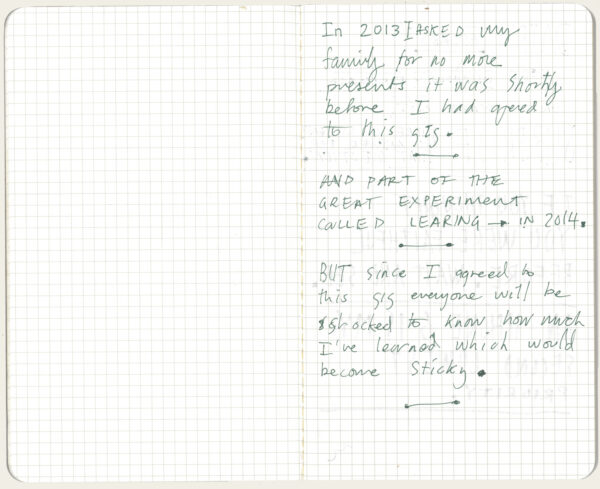 In 2013 I ASKED my
family for no more
presents it was shortly
before I had agreed
to this gig.
AND PART OF THE
GREAT EXPERIMENT
CALLED LEARING → IN 2014.
BUT since I agreed to
this gig everyone will be
shocked to know how much
I've learned which would
become sticky.